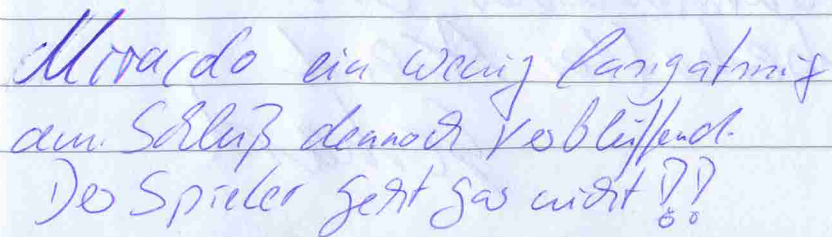 Miraıdo ein wenig langatmig
am Schluß dennoch verblüffend.
Der Spieler geht gar nicht!!